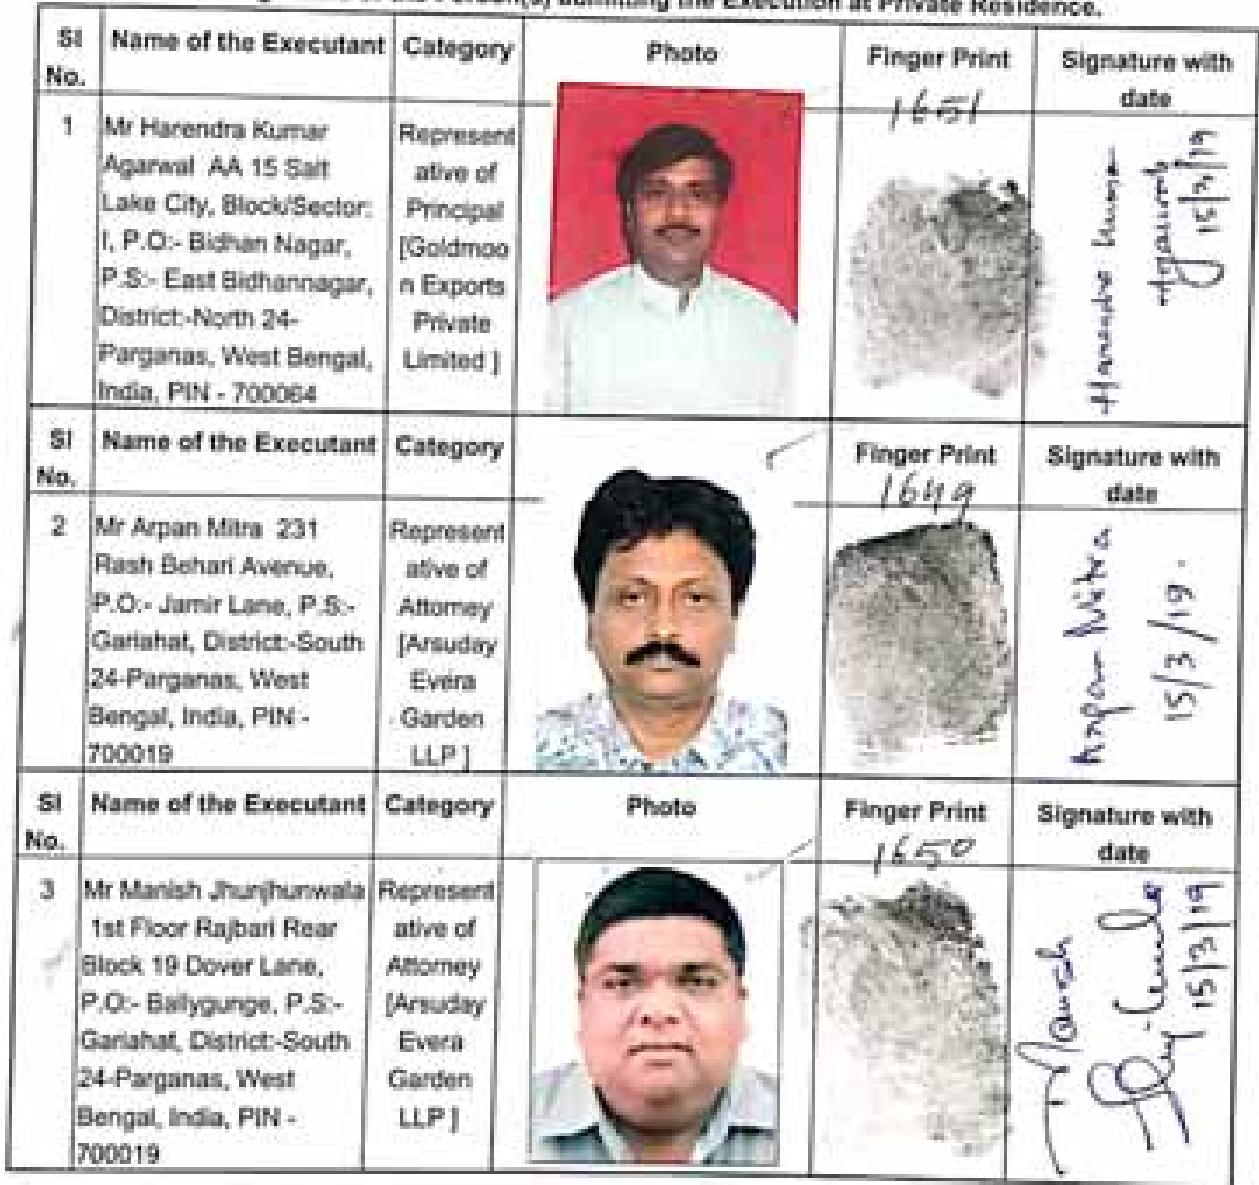 of the Person(s) admitting the Execution at Private Residence.
Sl No. Name of the Executant Category Photo Finger Print Signature with date
1651
1 Mr Harendra Kumar
Agarwal AA 15 Salt
Lake City, Block/Sector:
I, P.O:- Bidhan Nagar,
P.S:- East Bidhannagar,
District:-North 24-
Parganas, West Bengal,
India, PIN - 700064
Represent
ative of
Principal
[Goldmoo
n Exports
Private
Limited ]
Harendra Kumar
Agarwal
15/3/19
Sl No. Name of the Executant Category Finger Print Signature with date
1649
2 Mr Arpan Mitra 231
Rash Behari Avenue,
P.O:- Jamir Lane, P.S:-
Gariahat, District:-South
24-Parganas, West
Bengal, India, PIN -
700019
Represent
ative of
Attorney
[Arsuday
Evera
Garden
LLP ]
Arpan Mitra
15/3/19.
Sl No. Name of the Executant Category Photo Finger Print Signature with date
1650
3 Mr Manish Jhunjhunwala
1st Floor Rajbari Rear
Block 19 Dover Lane,
P.O:- Ballygunge, P.S:-
Gariahat, District:-South
24-Parganas, West
Bengal, India, PIN -
700019
Represent
ative of
Attorney
[Arsuday
Evera
Garden
LLP ]
Manish
15/3/19